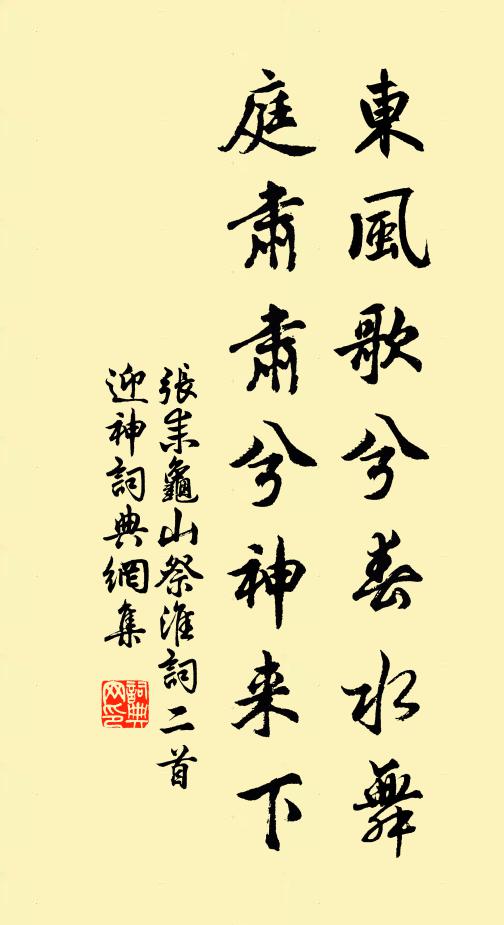 東風歌兮春水舞
庭肅肅兮神来下
張耒龜山祭淮詞二首
迎神詞典網集
詞典
网印